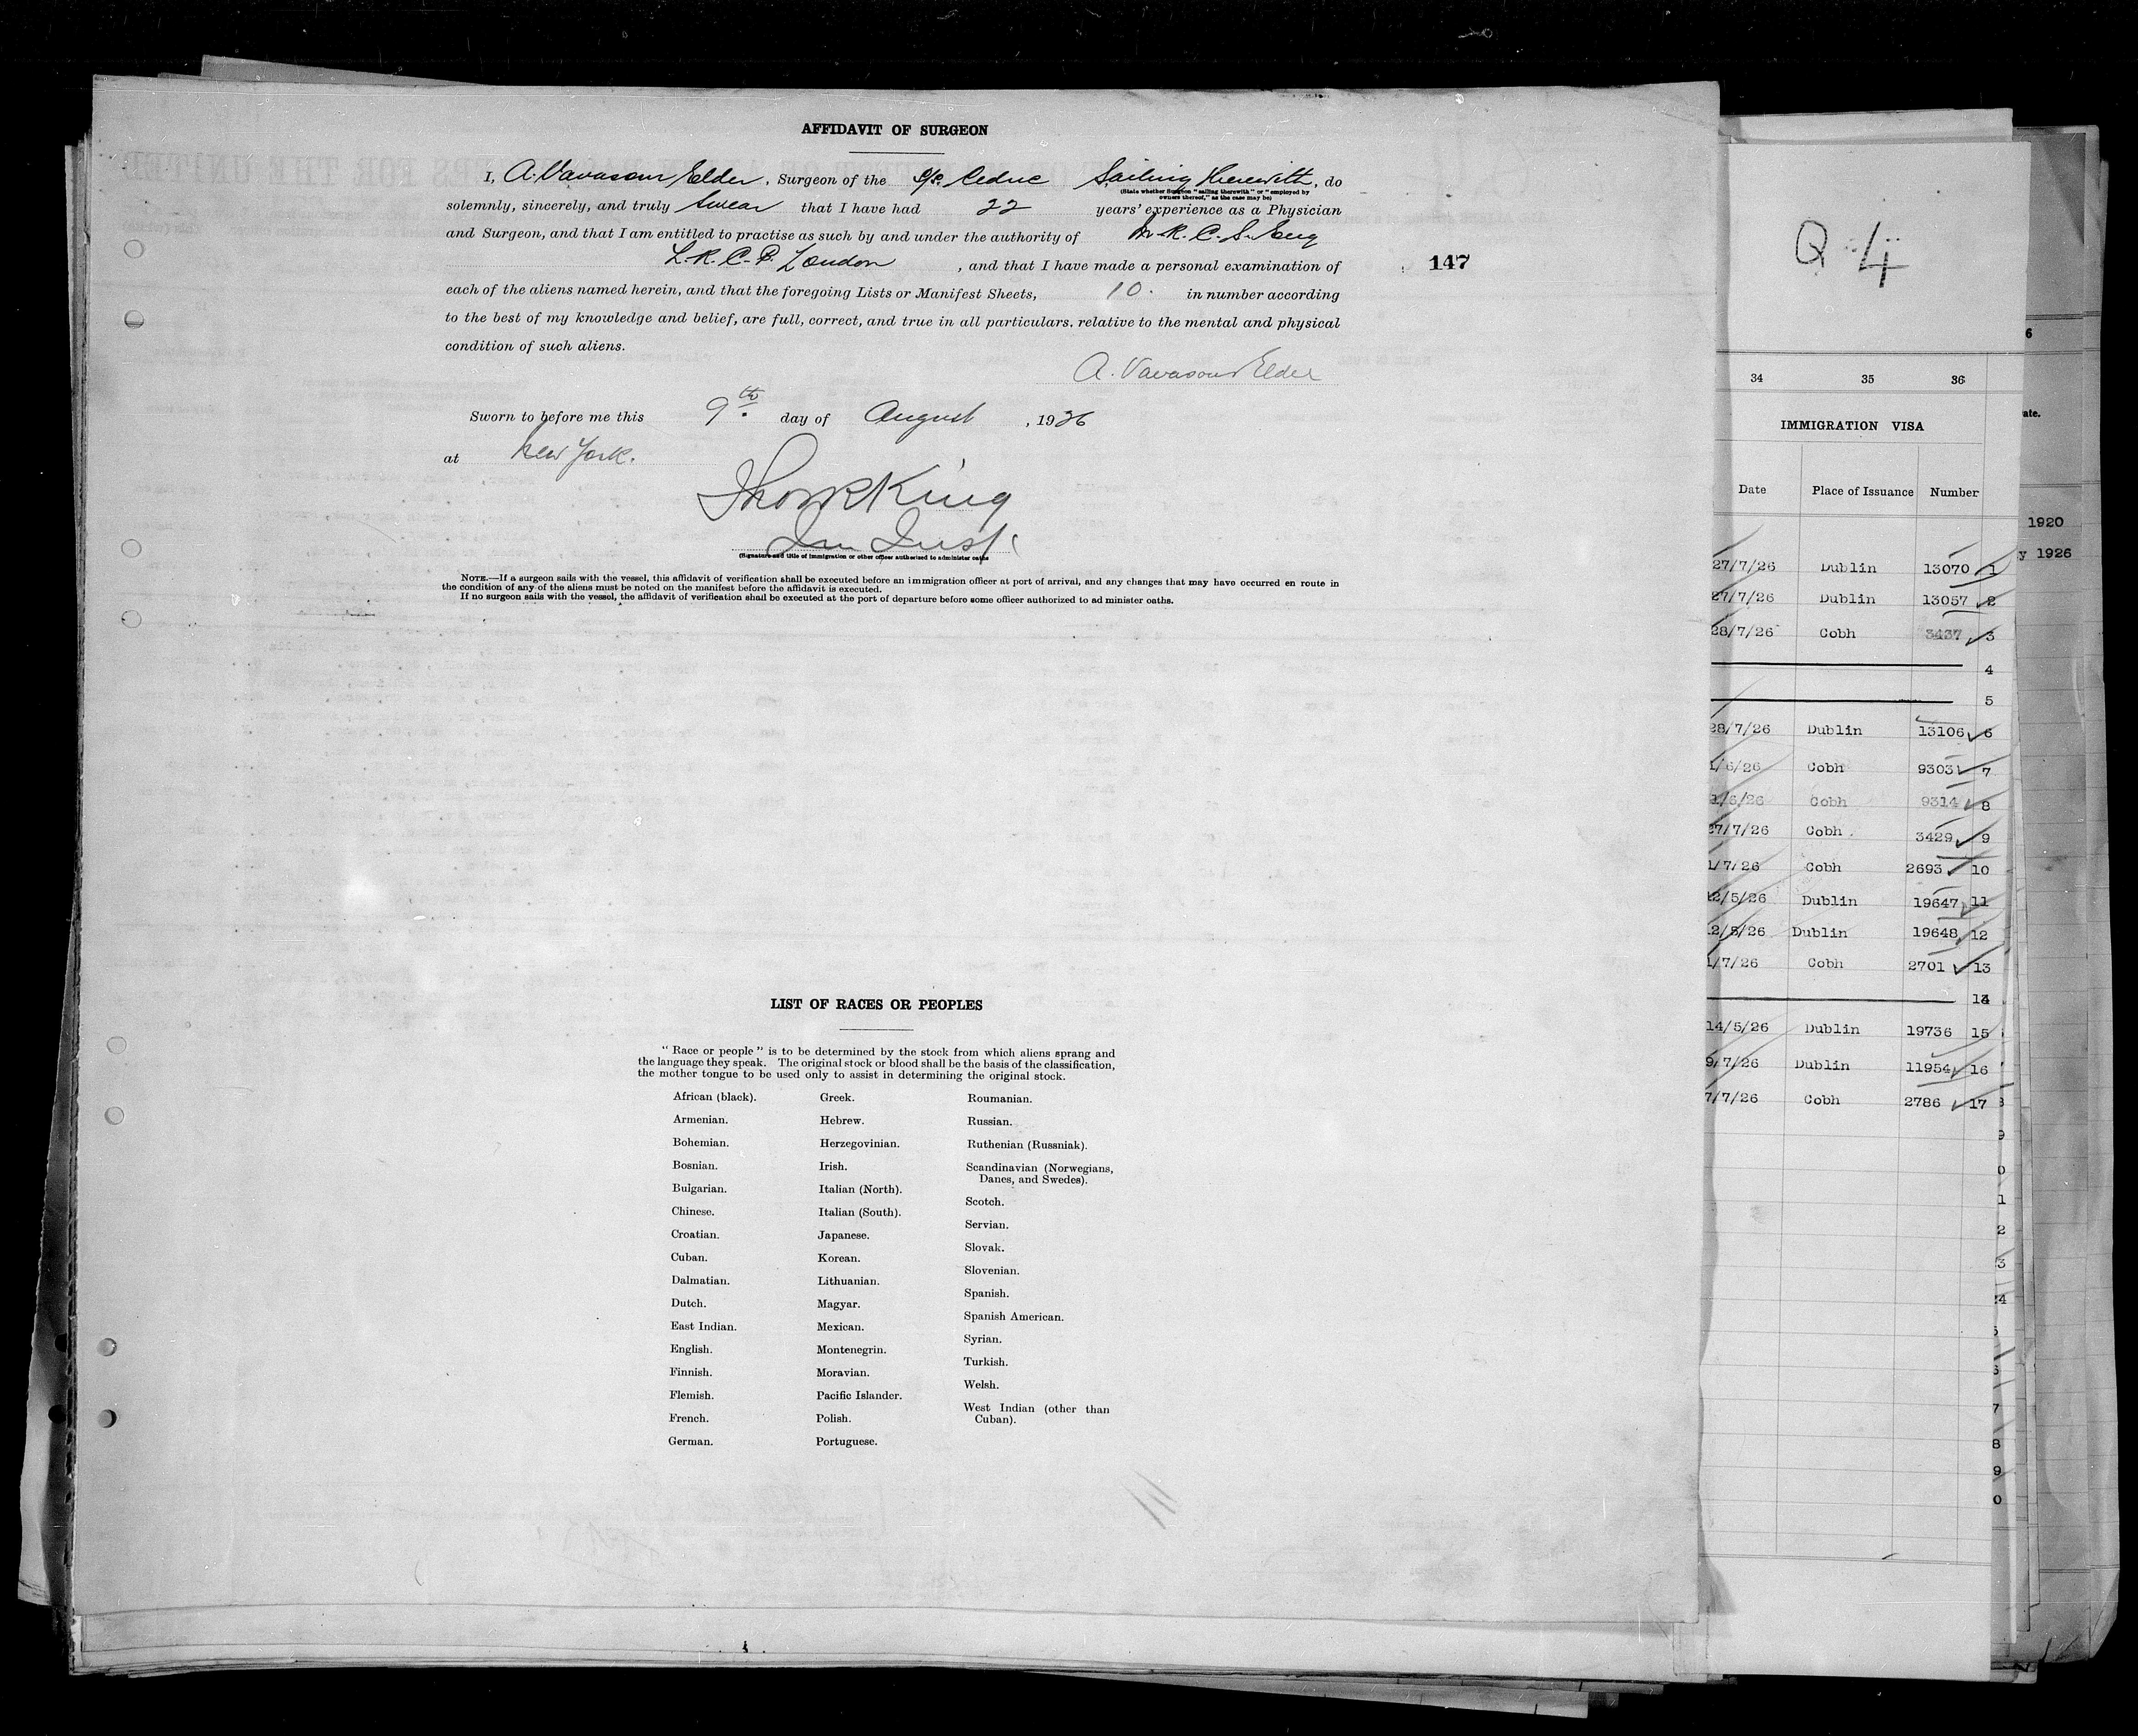 AFFIDAVIT OF SURGEON
I, A. Vavasour Elder, Surgeon of the S/S. Cedric Sailing Therewith, do
(State whether Surgeon "sailing therewith" or "employed by
owners thereof," as the case may be)
solemnly, sincerely, and truly swear that I have had 22 years' experience as a Physician
and Surgeon, and that I am entitled to practise as such by and under the authority of M.R.C.S. Eng
L.R.C.P. London, and that I have made a personal examination of
147
each of the aliens named herein, and that the foregoing Lists or Manifest Sheets, 10. in number according
to the best of my knowledge and belief, are full, correct, and true in all particulars, relative to the mental and physical
condition of such aliens.
A. Vavasour Elder
Sworn to before me this 9th day of August, 1926
at New York.
King
Im Insp.
(Signature and title of immigration or other officer authorized to administer oaths
NOTE.—If a surgeon sails with the vessel, this affidavit of verification shall be executed before an immigration officer at port of arrival, and any changes that may have occurred en route in
the condition of any of the aliens must be noted on the manifest before the affidavit is executed.
If no surgeon sails with the vessel, the affidavit of verification shall be executed at the port of departure before some officer authorized to administer oaths.
LIST OF RACES OR PEOPLES
"Race or people" is to be determined by the stock from which aliens sprang and
the language they speak. The original stock or blood shall be the basis of the classification,
the mother tongue to be used only to assist in determining the original stock.
African (black).
Armenian.
Bohemian.
Bosnian.
Bulgarian.
Chinese.
Croatian.
Cuban.
Dalmatian.
Dutch.
East Indian.
English.
Finnish.
Flemish.
French.
German.
Greek.
Hebrew.
Herzegovinian.
Irish.
Italian (North).
Italian (South).
Japanese.
Korean.
Lithuanian.
Magyar.
Mexican.
Montenegrin.
Moravian.
Pacific Islander.
Polish.
Portuguese.
Roumanian.
Russian.
Ruthenian (Russniak).
Scandinavian (Norwegians,
Danes, and Swedes).
Scotch.
Servian.
Slovak.
Slovenian.
Spanish.
Spanish American.
Syrian.
Turkish.
Welsh.
West Indian (other than
Cuban).
Q 4
34 35 36
IMMIGRATION VISA
Date Place of Issuance Number
27/7/26 Dublin 13070 1
27/7/26 Dublin 13057 2
28/7/26 Cobh 3437 3
4
5
28/7/26 Dublin 13106 6
1/6/26 Cobh 9303 7
1/6/26 Cobh 9314 8
27/7/26 Cobh 3429 9
1/7/26 Cobh 2693 10
12/5/26 Dublin 19647 11
12/5/26 Dublin 19648 12
1/7/26 Cobh 2701 13
14
14/5/26 Dublin 19736 15
9/7/26 Dublin 11954 16
7/7/26 Cobh 2786 17
6
ate.
1920
y 1926